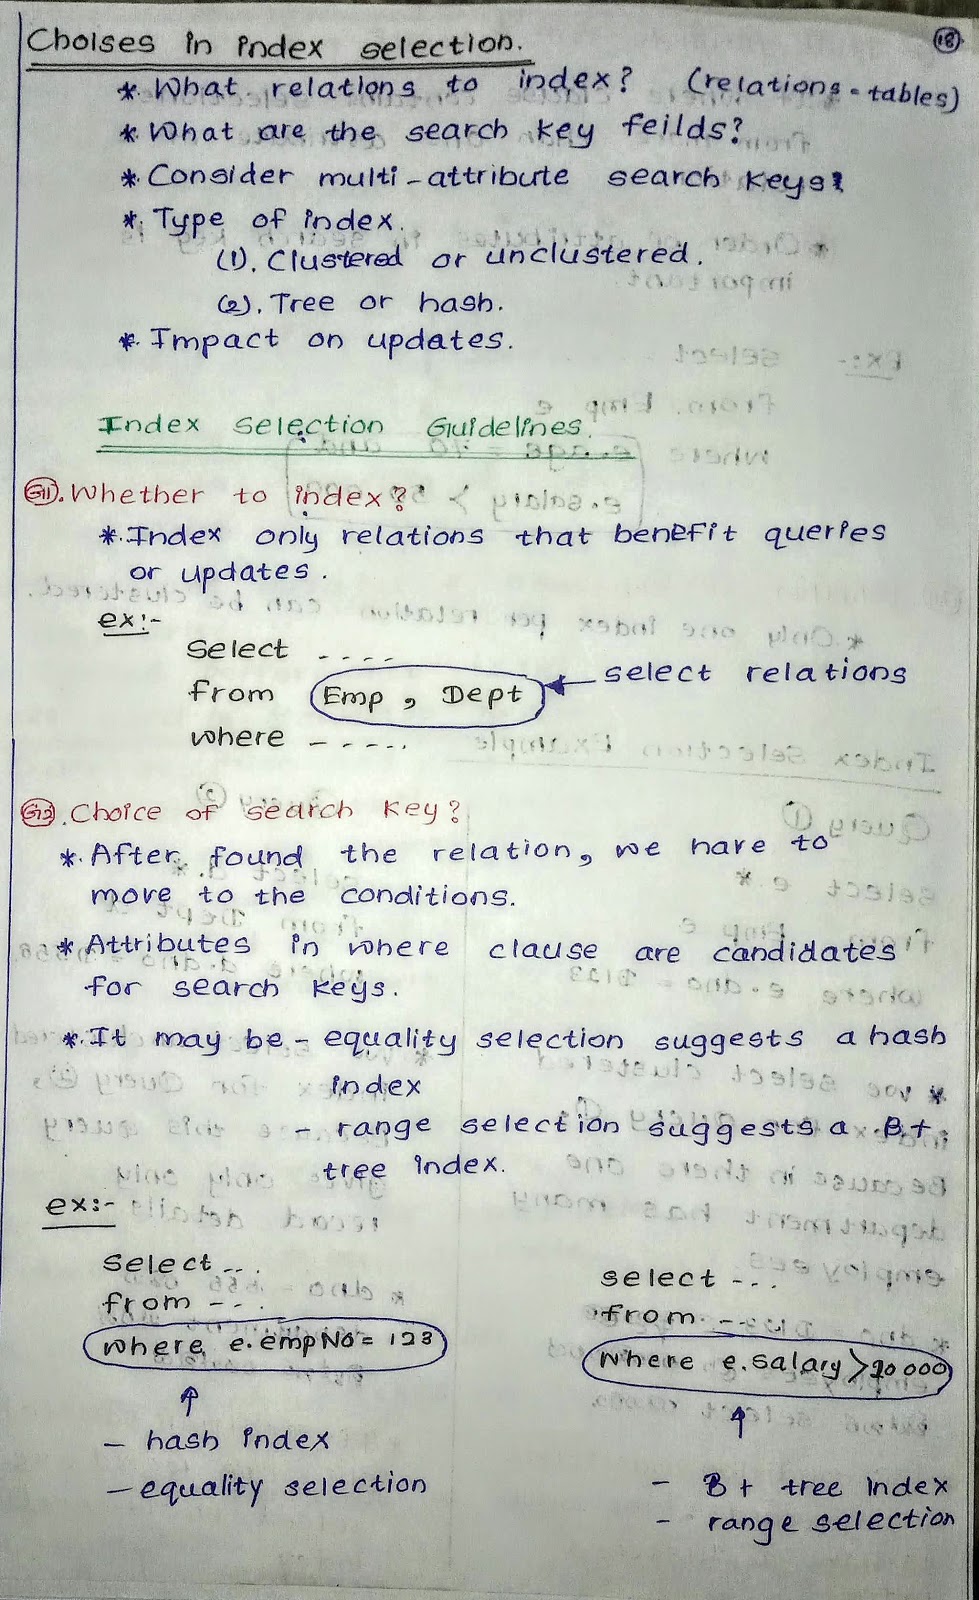 18
Choises in index selection.
* What relations to index? (relations - tables)
* What are the search key feilds?
* Consider multi-attribute search keys?
* Type of index.
(1). Clustered or unclustered.
(2). Tree or hash.
* Impact on updates.
Index Selection Guidelines.
G1. Whether to index?
* Index only relations that benefit queries
or updates.
ex:-
select ----
from Emp, Dept ← select relations
where -----
G2. Choice of search key?
* After found the relation, we have to
move to the conditions.
* Attributes in where clause are candidates
for search keys.
* It may be - equality selection suggests a hash
index
- range selection suggests a B+
tree index.
ex:-
select ...
from ---
where e.empNo = 123
↑
- hash index
- equality selection
select ---
from ---
where e.salary > 20000
↑
- B+ tree index
- range selection